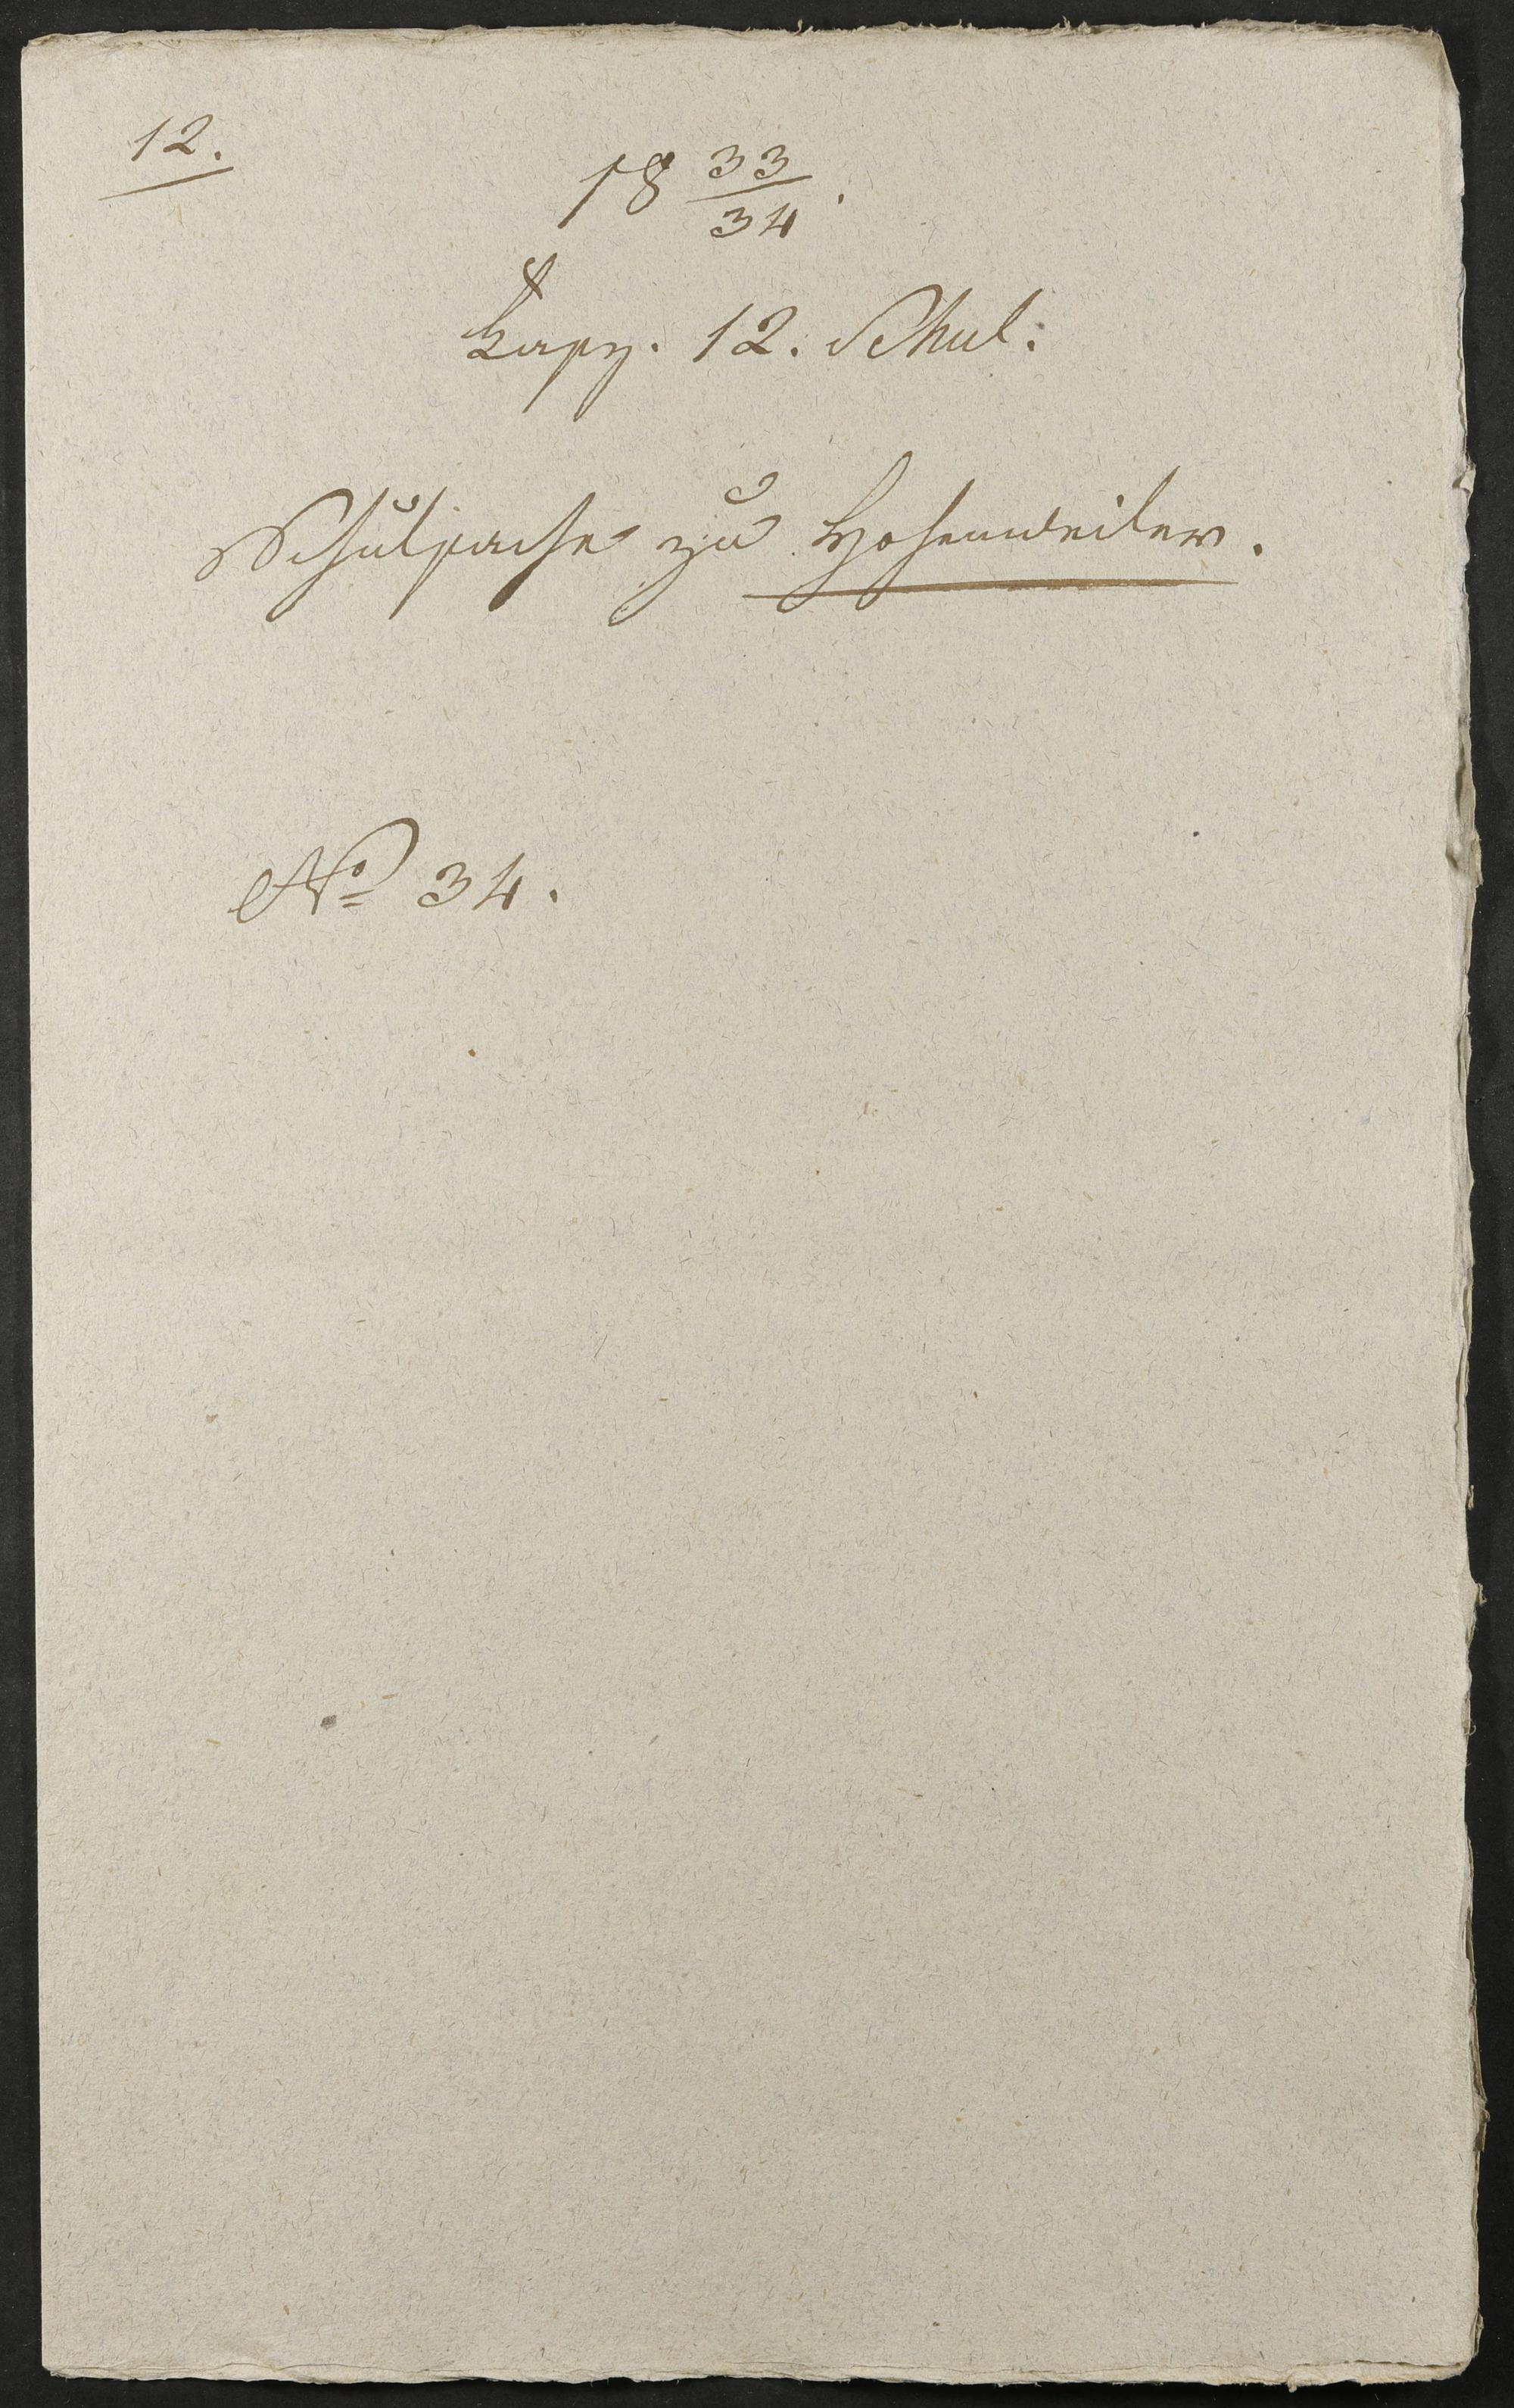 12.
18 33/34.
Fasz. 12. Schul:
Schulsache zu Hohenweiler.
No 34.